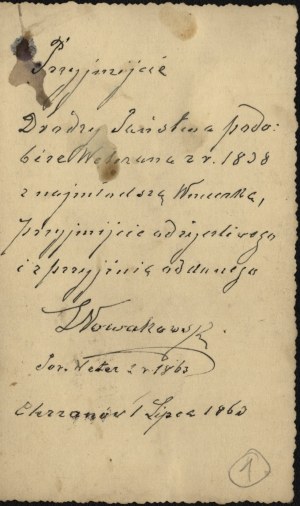 Przyjmijcie
Drodzy Państwo podo-
biznę Weterana z r. 1838
z najmłodszą Wnuczką,
przyjmijcie od życzliwego
i z przyjaźnią oddanego
LNowakowski
Weter z r 1863
Chrzanów 1 Lipca
1